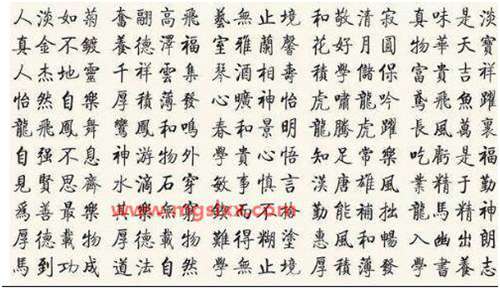 人淡如菊 奮翮高飛 藝無止境 和敬清寂 真味是淡
真金不鍍 養德澤福 室雅蘭馨 花好月圓 物華天寶
人杰地靈 千祥雲集 琴酒相壽 積學儲保 富貴吉祥
怡然自樂 厚積薄發 心曠神怡 虎嘯龍吟 鳶飛魚躍
龍飛鳳舞 鸞鳳和鳴 春和景明 龍騰虎躍 長風萬裏
自强不息 神游物外 學貴心悟 知足常樂 吃虧是福
見賢思齊 水滴石穿 敏事慎言 漢唐雄風 業精于勤
為善最樂 其樂無窮 勤能補拙 龍馬精神
厚德載物 厚德載物 難得糊塗 惠風和暢 入幽出朗
馬到功成 道法自然 學無止境 厚積薄發 學書養志